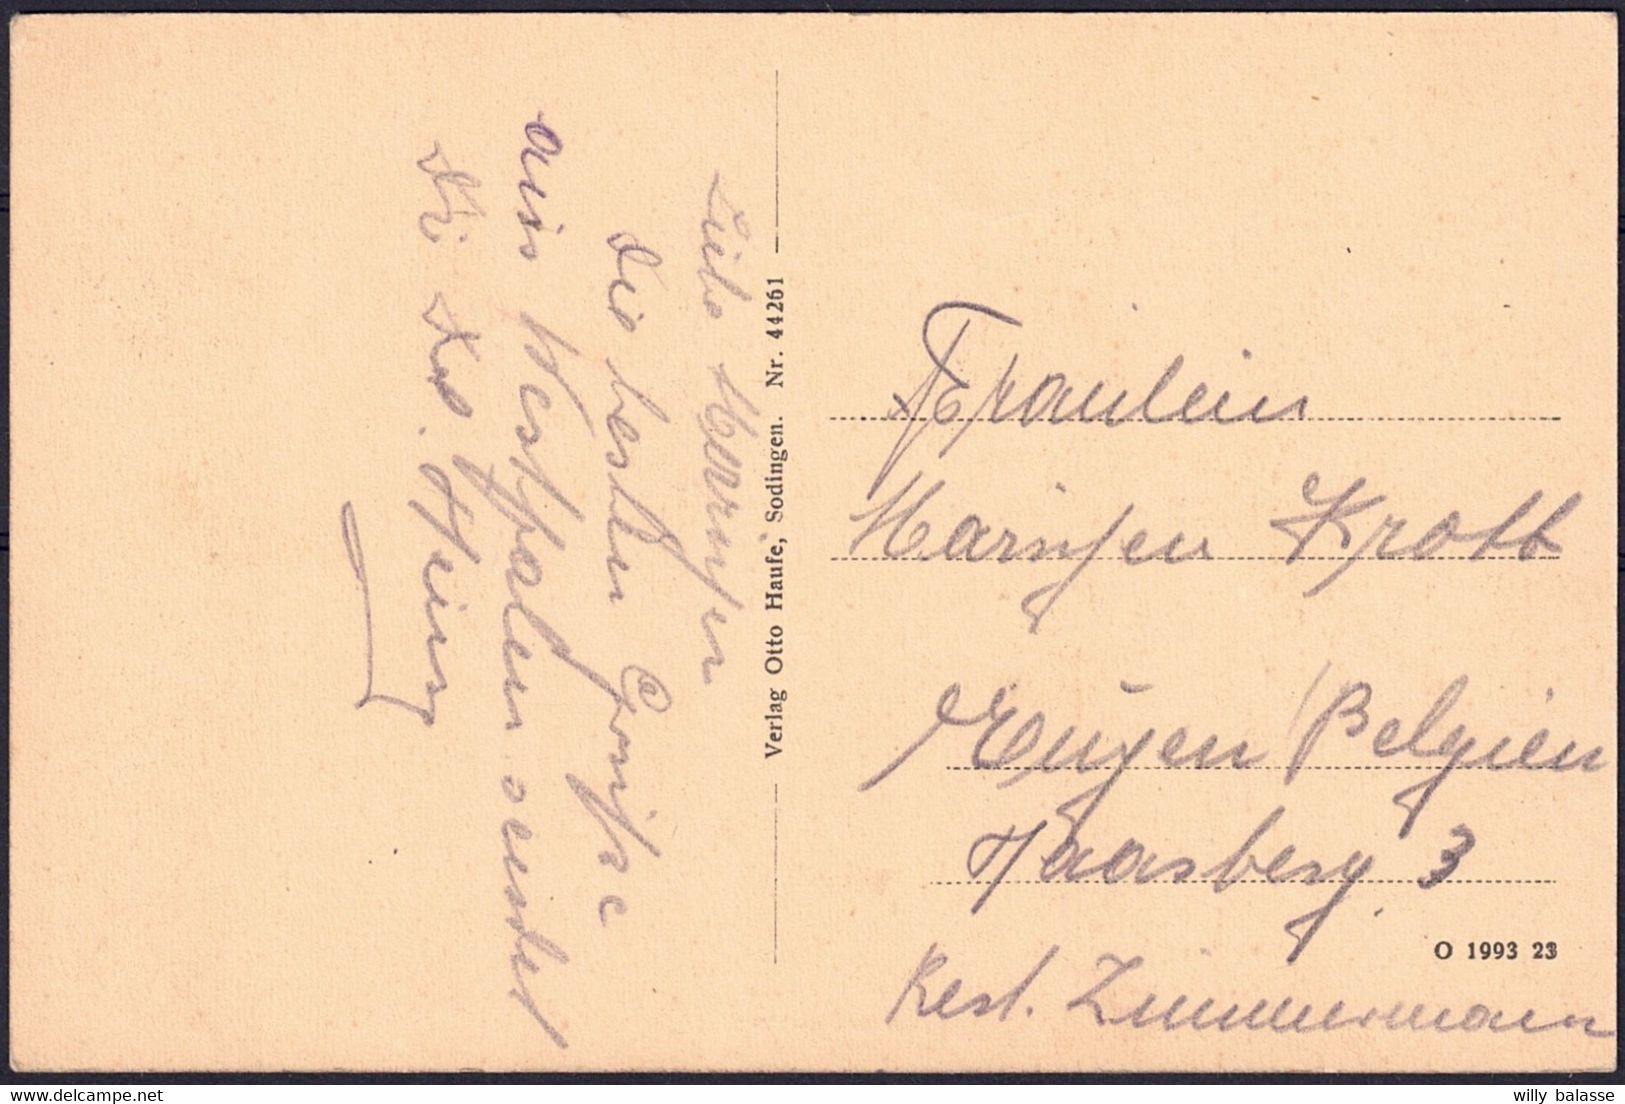 Liebe Marijen
die besten Grüsse
aus Westfalen sendet
Dir Heinz
Verlag Otto Haufe, Sodingen. Nr. 44261
Fräulein
Marijen Krott
Eupen / Belgien
Haasberg 3
O 1993 23
Rest. Zimmermann
willy balasse